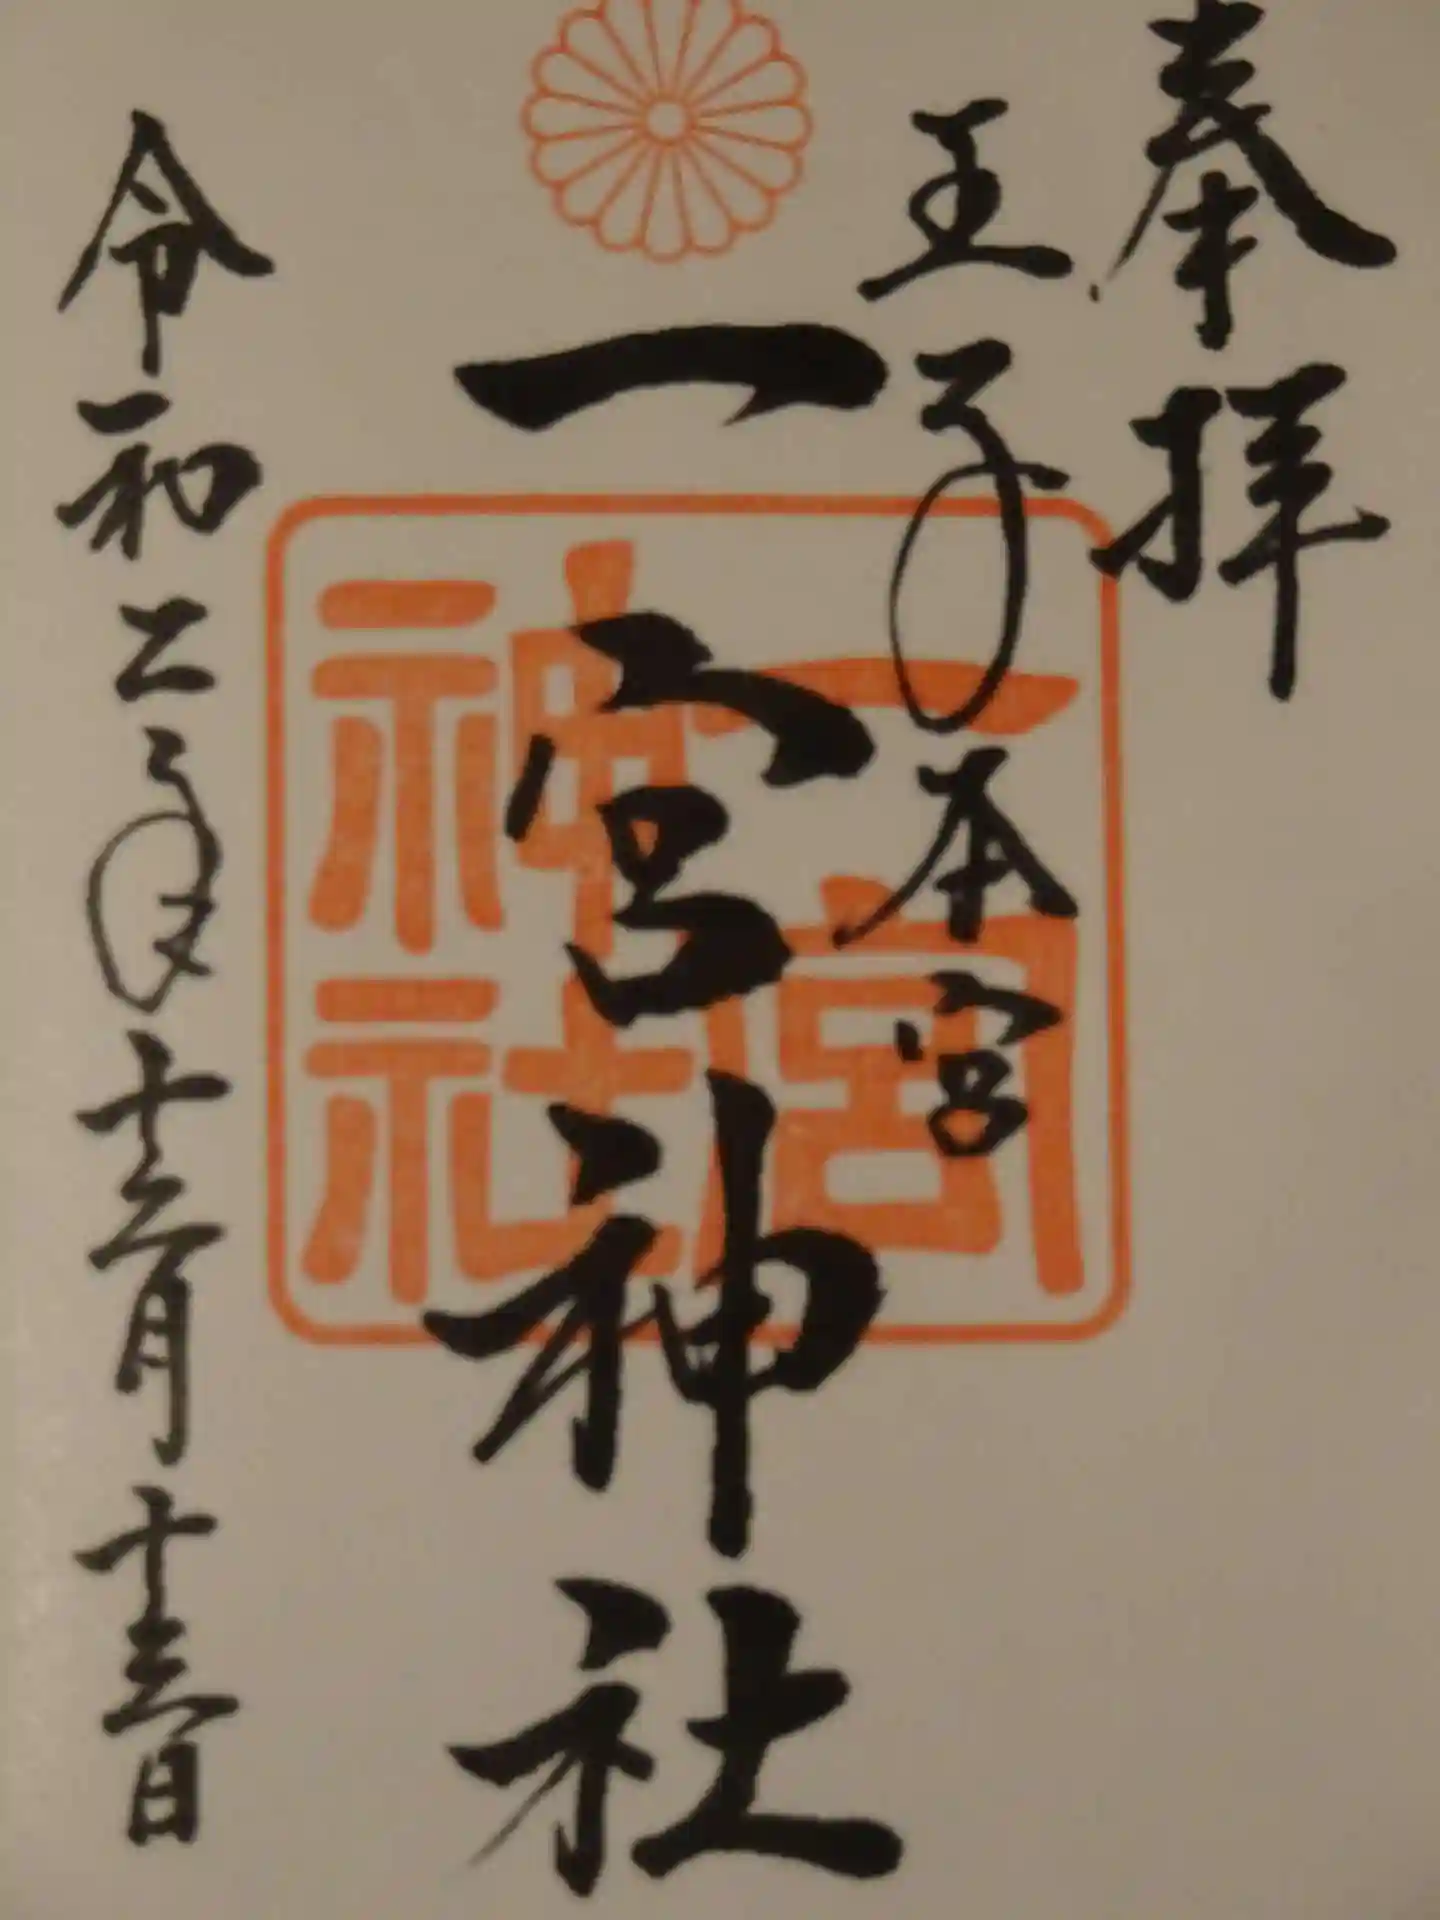 奉拝
王子本宮
一宮神社
一宮
神社
令和二年十二月十三日